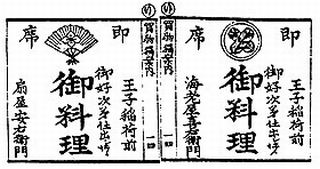 即
席
王子稲荷前
御好次第仕出し仕候
御料理
海老屋喜右衛門
買物独案内
即
席
王子稲荷前
御好次第仕出し仕候
御料理
扇屋安右衛門